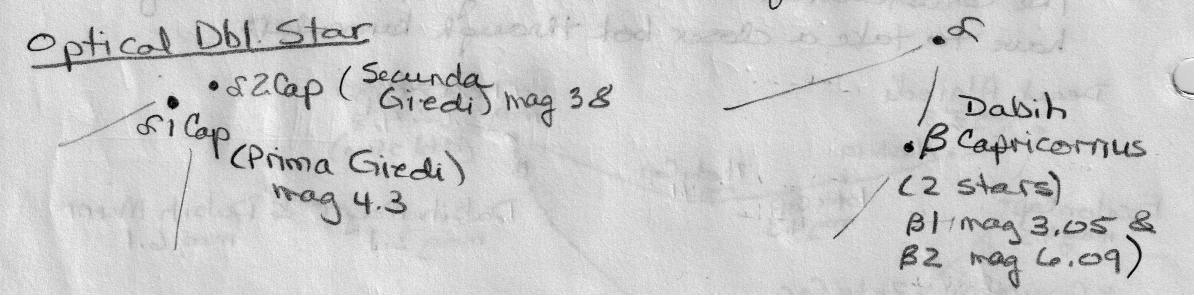 Optical Dbl. Star
α2Cap (Secunda
Giedi) mag 38
α1 Cap
(Prima Giedi)
mag 4.3
α
Dabih
β Capricornus
(2 stars)
β1 mag 3.05 &
β2 mag 6.09)